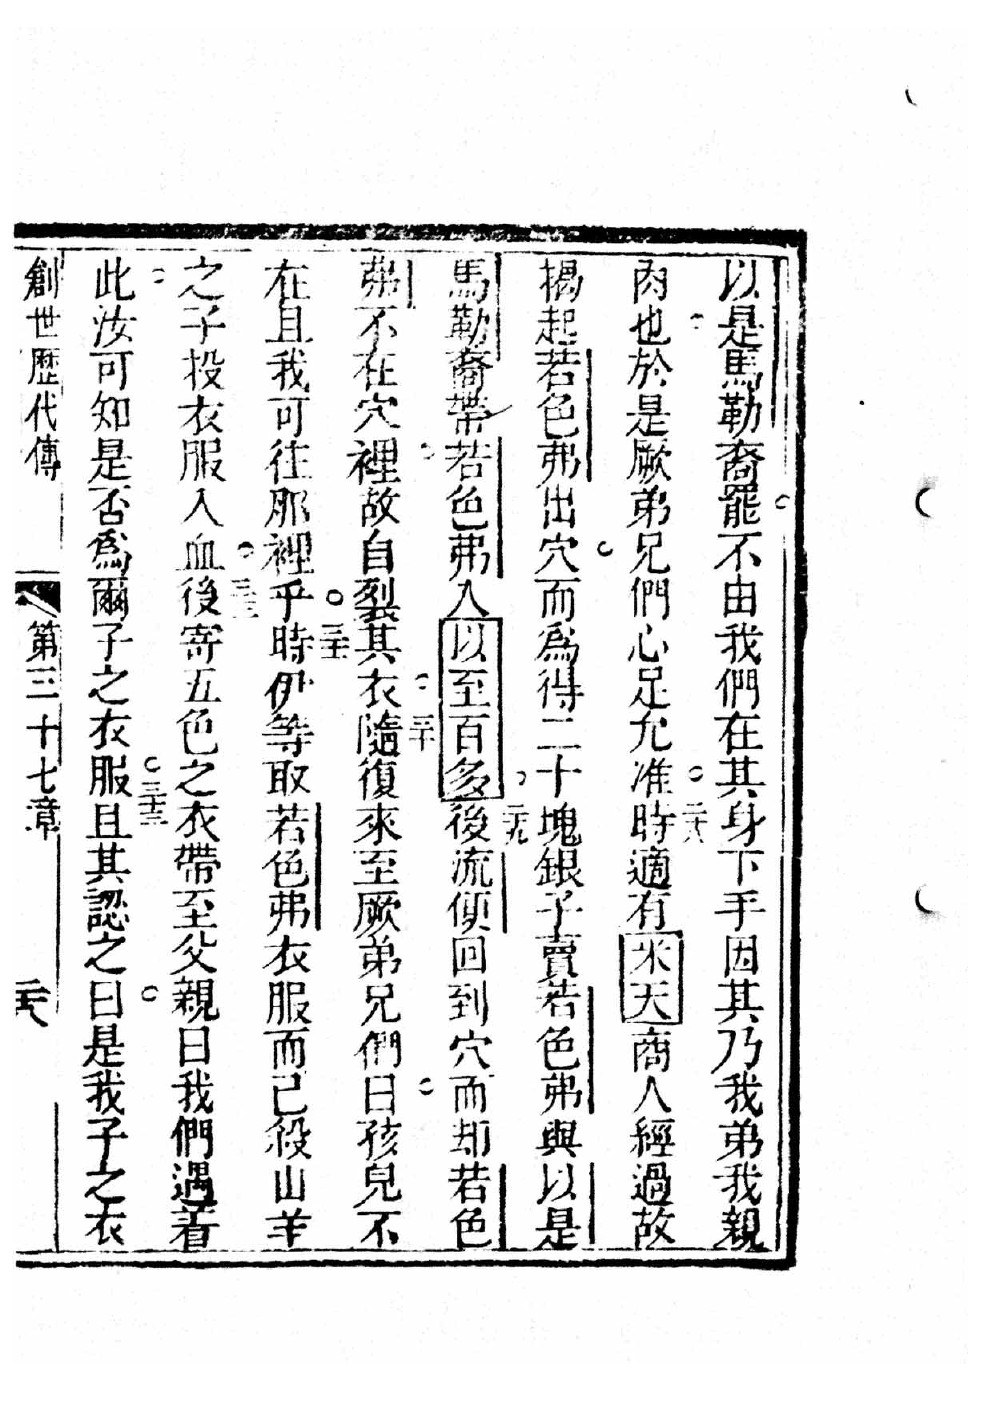 以是馬勒裔罷不由我們在其身下手因其乃我弟我親
肉也於是厥弟兄們心足允准二十八時適有米天商人經過故
揭起若色弗出穴而爲得二十塊銀子賣若色弗與以是
馬勒裔帶若色弗入以至百多二十九後流便回到穴而却若色
弗不在穴裡故自裂其衣三十隨復來至厥弟兄們曰孩兒不
在且我可往那裡乎三十一時伊等取若色弗衣服而已殺山羊
之子投衣服入血三十二後寄五色之衣帶至父親曰我們遇着
此汝可知是否爲爾子之衣服三十三且其認之曰是我子之衣
創世歷代傳 第三十七章